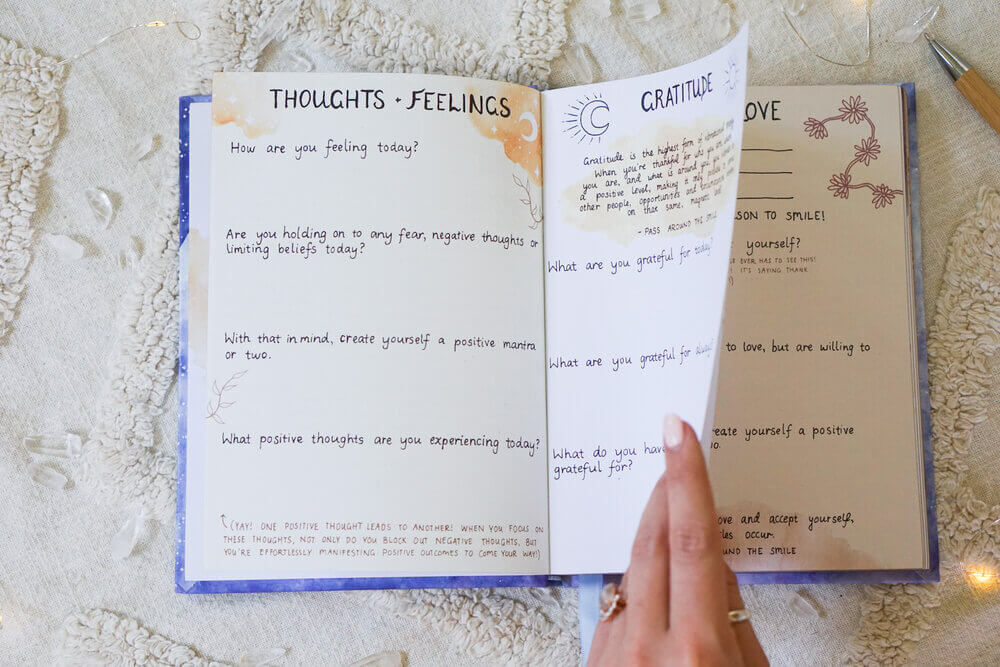 THOUGHTS + FEELINGS
How are you feeling today?
Are you holding on to any fear, negative thoughts or
limiting beliefs today?
With that in mind, create yourself a positive mantra
or two.
What positive thoughts are you experiencing today?
(YAY! ONE POSITIVE THOUGHT LEADS TO ANOTHER! WHEN YOU FOCUS ON
THESE THOUGHTS, NOT ONLY DO YOU BLOCK OUT NEGATIVE THOUGHTS, BUT
YOU'RE EFFORTLESSLY MANIFESTING POSITIVE OUTCOMES TO COME YOUR WAY!)
GRATITUDE
Gratitude is the highest form of
When you're thankful for who you are
you are, and what is around you, you
a positive level, making it only possible
other people, opportunities and
on that same,
- PASS AROUND THE SMILE
What are you grateful for today?
What are you grateful for always?
What do you have
grateful for?
LOVE
SON TO SMILE!
yourself?
SE EVER HAS TO SEE THIS!
IT'S SAYING THANK
to love, but are willing to
reate yourself a positive
o.
ove and accept yourself,
les occur.
UND THE SMILE